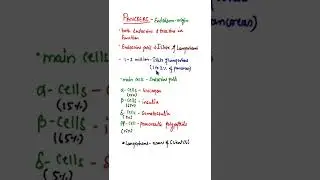 Pancreas - Endoderm origin
• both Endocrine & Exocrine in
Function
• Endocrine part - Islets of Langerhans
• 1-2 million - Islets of Langerhans
(1 to 2% of pancreas)
• main cells - Endocrine part
α - cells - Glucagon
β - cells - insulin
(65%)
δ - cells - Somatostatin
PP - cells - Pancreatic polypeptide
* Langerhans - name of
ancreas)
α - cells
(25%)
β - cells
(65%)
δ - cells